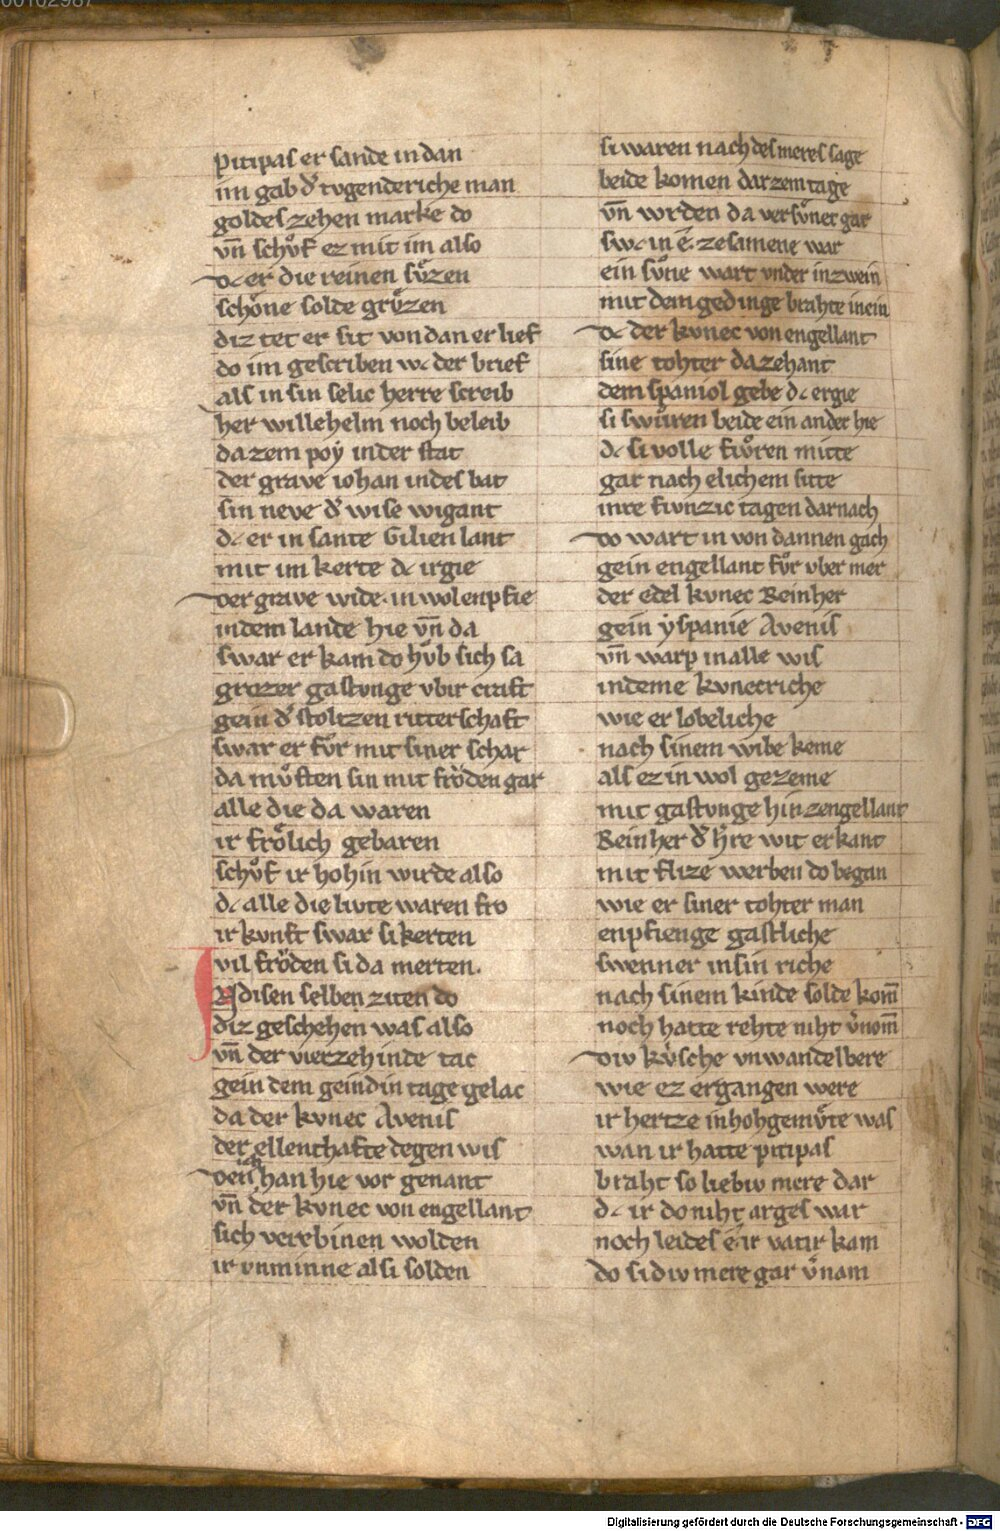 pitipas er sande in dan
im gab dͤ tvgenderiche man
goldes zehen marke do
vn̄ schvͦf ez mit im also
dc er die reinen svͤzen
schoͤne solde grvͤzen
diz tet er sit von dan er lief
do im gescriben wc der brief
als in sin selic herre screib
her willehelm noch beleib
da zem poẏ in der stat
der grave iohan in des bat
sin neve dͤ wise wigant
dc er in sante Gilien lant
mit im kerte dc irgie
der grave wide. in wol enpfie
in dem lande hie vn̄ da
swar er kam do hvͦb sich sa
grozer gastvnge vbir craft
gein dͤ stoltzen ritterschaft
swar er fvͦr mit siner schar
da mvͦsten sin mit froͤden gar
alle die da waren
ir froͤlich gebaren
schvͦf ir hohin wirde also
dc alle die livte waren fro
ir kvnft swar si kerten
vil froͤden si da merten.
IN disen selben ziten do
diz geschehen was also
vn̄ der vierzehinde tac
gein dem geindin tage gelac
da der kvnec Avenis
der ellenthafte degen wis
den ich han hie vor genant
vn̄ der kvnec von engellant
sich verebinen wolden
ir vnminne als si solden
si waren nach des meres sage
beide komen dar zem tage
vn̄ wrden da versvͤnet gar
swc in ê. zesamene war
ein svͦne wart vnder in zwein
mit dem gedinge brahte in ein
dc der kvnec von engellant
sine tohter da zehant
dem spaniol gebe dc ergie
si swuͦren beide ein ander hie
dc si volle fvͦren mitte
gar nach elichem sitte
inre fivnzic tagen darnach
do wart in von dannen gach
gein engellant fvͦr vber mer
der edel kvnec Reinher
gein yspanie Avenis
vn̄ warp in alle wis
in deme kvnecriche
wie er lobeliche
nach sinem wibe keme
als ez in wol gezeme
mit gastvnge hin zengellant
Reinher dͤ h̄re wit erkant
mit flize werben do began
wie er siner tohter man
enpfienge gastliche
swenner in sin riche
nach sinem kinde solde kom̄
noch hatte rehte niht v̾nom̄
div kvͤsche vnwandelbere
wie ez ergangen were
ir hertze in hohgemvͤte was
wan ir hatte pitipas
braht so liebiv mere dar
dc ir do niht arges war
noch leides ê ir vatir kam
do si div mere gar v̾nam
Digitalisierung gefördert durch die Deutsche Forschungsgemeinschaft - DFG